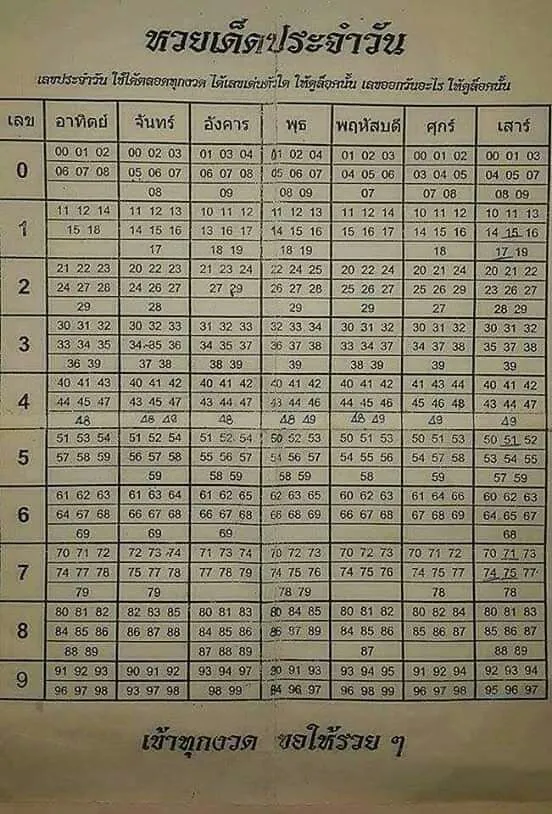 หวยเด็ดประจำวัน
เลขประจำวัน ใช้ได้ตลอดทุกงวด ได้เลขเด่นตัวใด ให้ดูล็อคนั้น เลขออกวันอะไร ให้ดูล็อคนั้น
เลข อาทิตย์ จันทร์ อังคาร พุธ พฤหัสบดี ศุกร์ เสาร์
00 01 02 00 02 03 01 03 04 01 02 04 01 02 03 00 01 02 00 01 03
0 06 07 08 05 06 07 06 07 08 05 06 07 04 05 06 03 04 05 04 05 07
08 09 08 09 07 07 08 08 09
11 12 14 11 12 13 10 11 12 11 12 13 11 12 14 10 11 12 10 11 13
1 15 18 14 15 16 13 16 17 14 15 16 15 16 17 14 15 16 14 15 16
17 18 19 18 19 18 17 19
21 22 23 20 22 23 21 23 24 22 24 25 20 22 24 20 21 24 20 21 22
2 24 27 28 24 26 27 27 29 26 27 28 25 26 27 25 26 29 23 26 27
29 28 29 29 27 28 29
30 31 32 30 32 33 31 32 33 32 33 34 30 31 32 30 31 32 30 31 32
3 33 34 35 34 35 36 34 35 37 36 37 38 33 34 37 34 37 38 35 37 38
36 39 37 38 38 39 39 38 39 39 39
40 41 43 40 41 42 40 41 42 40 41 42 40 41 42 41 43 44 40 41 42
4 44 45 47 43 45 47 43 44 47 43 44 46 44 45 46 45 46 48 43 44 47
48 48 49 48 48 49 48 49 49 49
51 53 54 51 52 54 51 52 54 50 52 53 50 51 53 50 51 53 50 51 52
5 57 58 59 56 57 58 55 56 57 54 56 57 54 55 56 54 57 58 53 54 55
59 58 59 58 59 58 59 57 59
61 62 63 61 63 64 61 62 65 62 63 65 60 62 63 61 64 66 60 62 63
6 64 67 68 66 67 68 66 67 68 66 68 69 66 67 68 67 68 69 64 65 67
69 69 69 68
70 71 72 72 73 74 71 73 74 70 72 73 70 72 73 70 71 72 70 71 73
7 74 77 78 75 77 78 77 78 79 74 75 76 74 75 76 74 75 77 74 75 77
79 79 78 79 78 78
80 81 82 82 83 85 80 81 83 80 84 85 80 81 82 80 82 84 80 81 83
8 84 85 86 86 87 88 84 85 86 86 87 89 84 85 86 85 86 87 85 86 87
88 89 87 88 89 87 88 89
91 92 93 90 91 92 93 94 97 90 91 93 93 94 95 91 92 94 92 93 94
9 96 97 98 93 97 98 98 99 94 96 97 96 98 99 96 97 98 95 96 97
เข้าทุกงวด ขอให้รวย ๆ